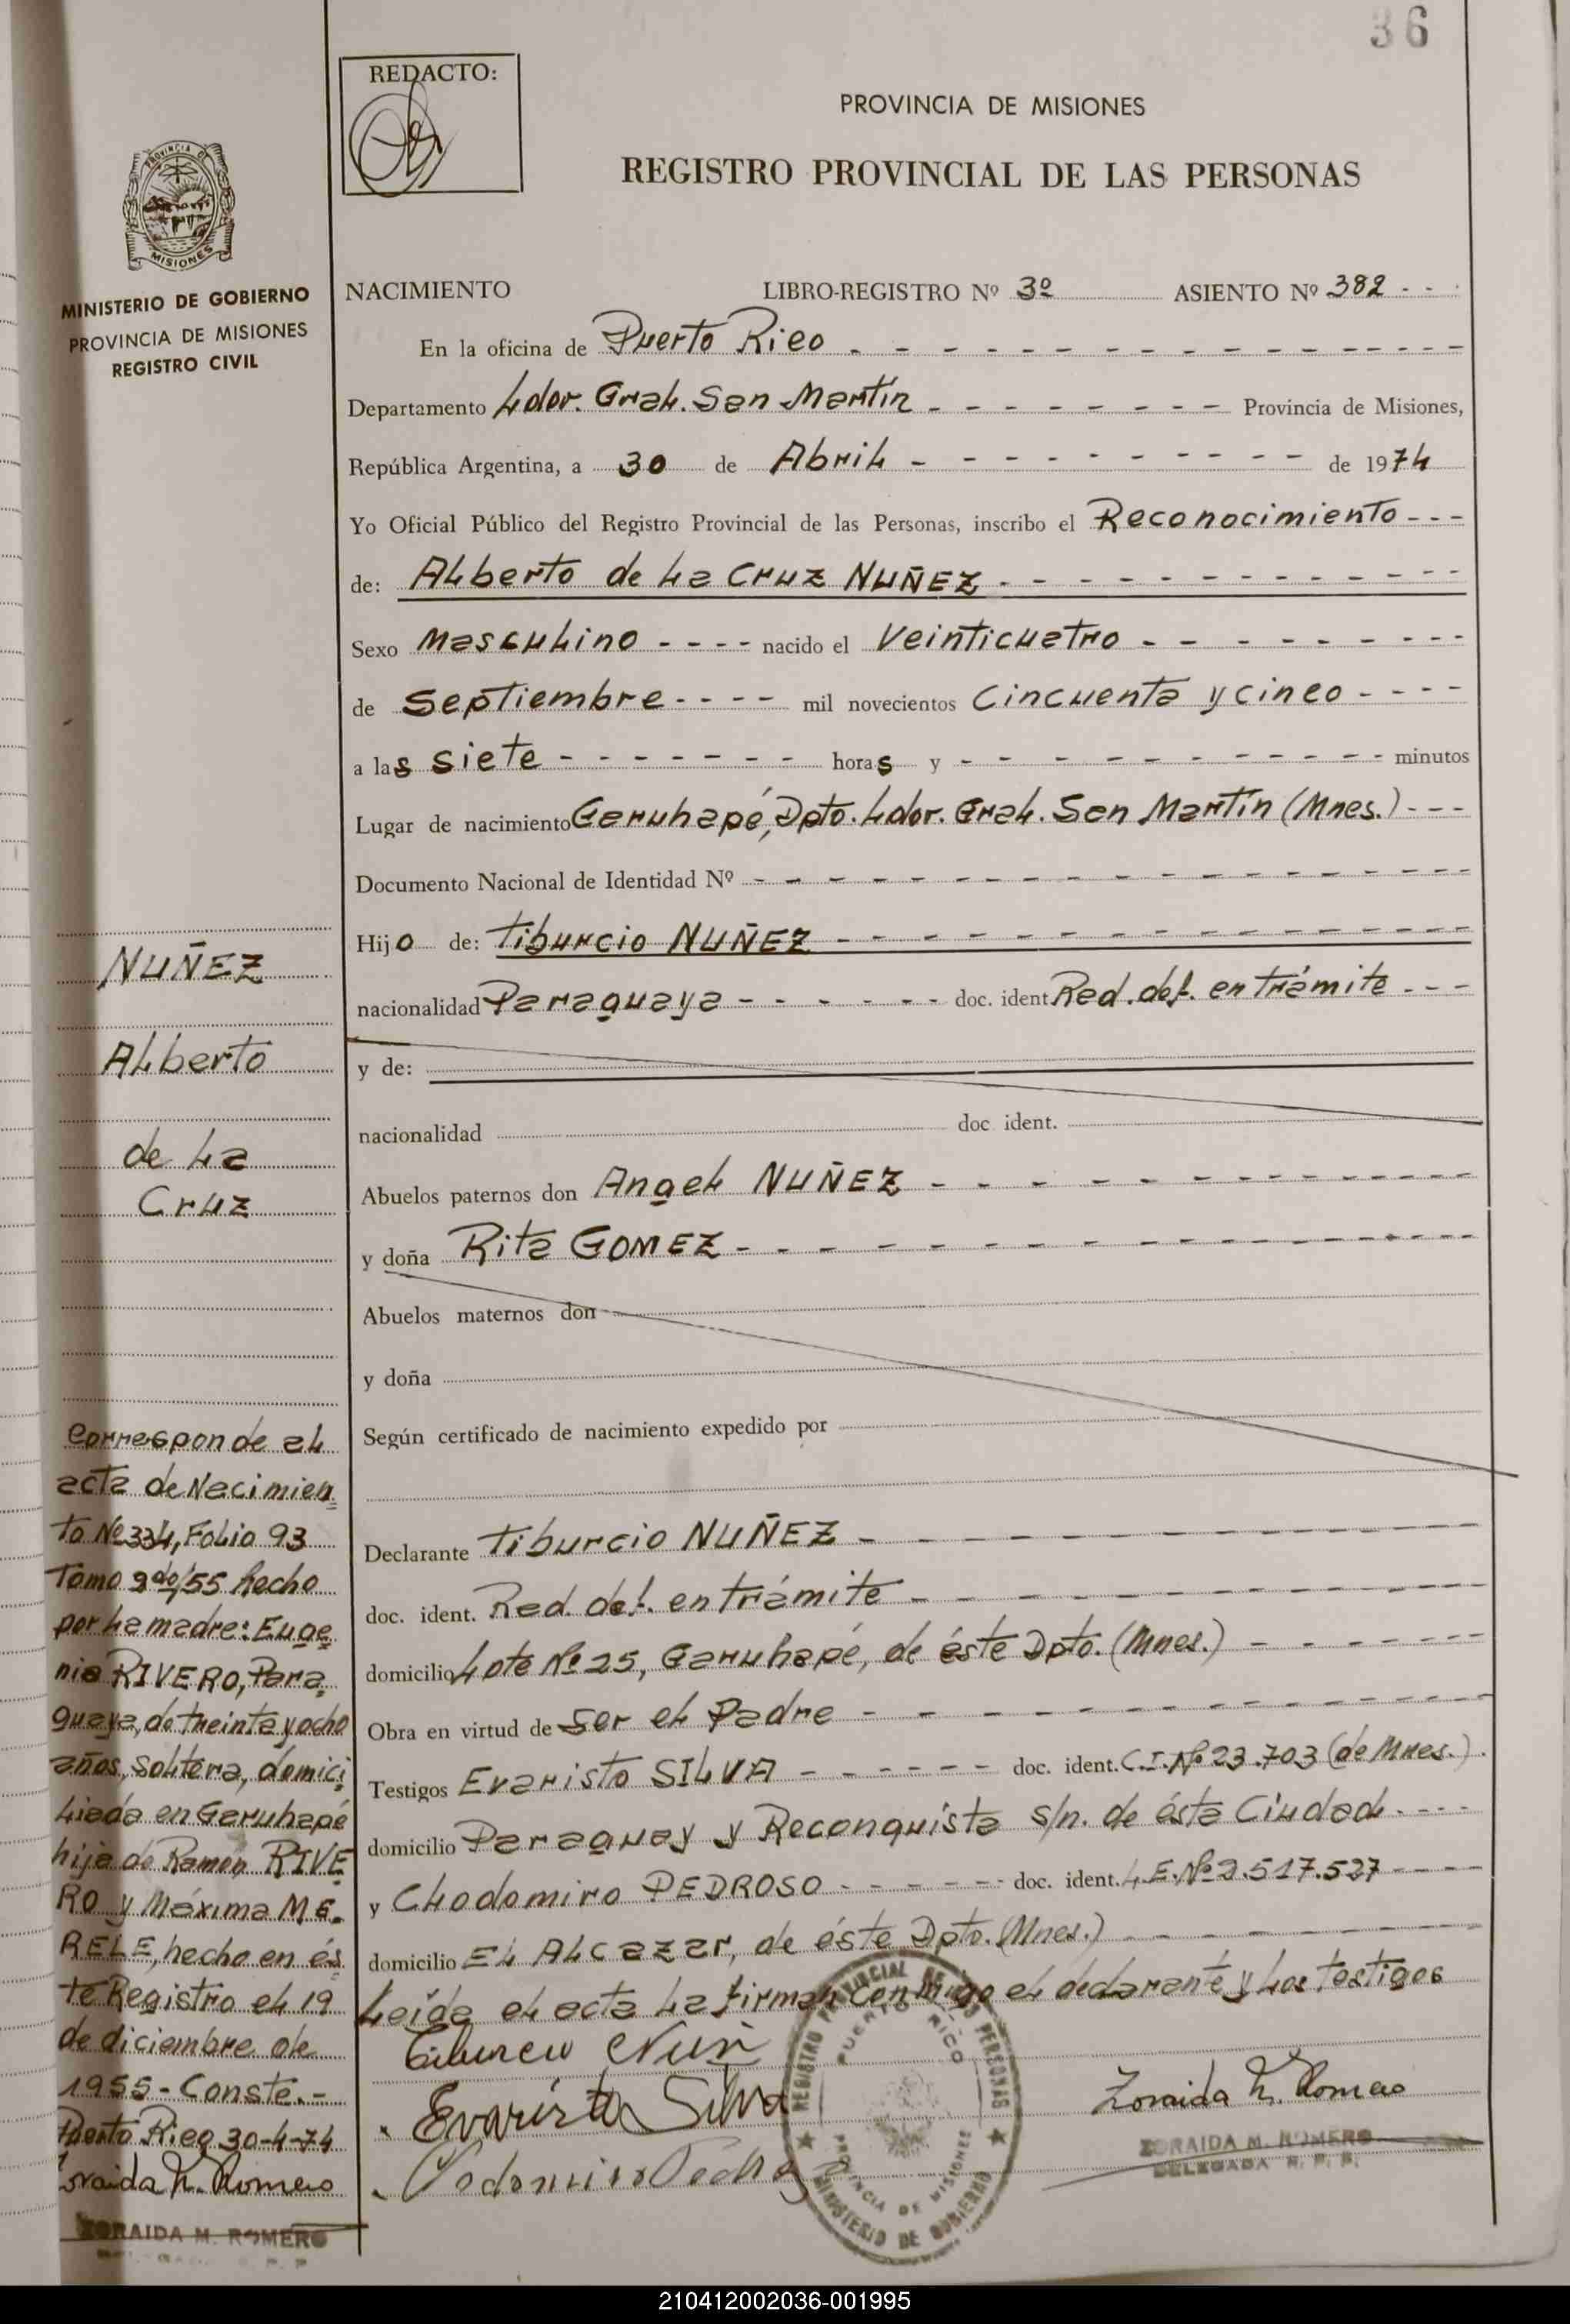 36
REDACTO:
PROVINCIA DE MISIONES
REGISTRO PROVINCIAL DE LAS PERSONAS
PROVINCIA DE
MISIONES
MINISTERIO DE GOBIERNO
PROVINCIA DE MISIONES
REGISTRO CIVIL
NACIMIENTO LIBRO-REGISTRO Nº 3º ASIENTO Nº 382 - -
En la oficina de Puerto Rico
Departamento Ldor. Gral. San Martín Provincia de Misiones,
República Argentina, a 30 de Abril de 1974
Yo Oficial Público del Registro Provincial de las Personas, inscribo el Reconocimiento
de: Alberto de La Cruz NUÑEZ
Sexo Masculino nacido el Veinticuatro
de Septiembre mil novecientos Cincuenta y cinco
a las siete horas y minutos
Lugar de nacimiento Garuhapé, Dpto. Ldor. Gral. San Martín (Mnes.)
Documento Nacional de Identidad Nº
Hijo de: Tiburcio NUÑEZ
nacionalidad Paraguaya doc. ident. Rad. def. en trámite
y de:
nacionalidad doc ident.
Abuelos paternos don Angel NUÑEZ
y doña Rita GOMEZ
Abuelos maternos don
y doña
Según certificado de nacimiento expedido por
Declarante Tiburcio NUÑEZ
doc. ident. Rad. def. en trámite
domicilio Lote Nº 25, Garuhapé, de éste Dpto. (Mnes.)
Obra en virtud de ser el Padre
Testigos Evaristo SILVA doc. ident. C.I. Nº 23.703 (de Mnes.)
domicilio Paraguay y Reconquista s/n. de ésta Ciudad
y Clodomiro PEDROSO doc. ident. L.E. Nº 2.517.527
domicilio El Alcazar, de éste Dpto. (Mnes.)
Leída el acta la firman conmigo el declarante y los testigos
Evaristo Silva
Zoraida M. Romero
ZORAIDA M. ROMERO
DELEGADA R. P. P.
REGISTRO PROVINCIAL DE LAS PERSONAS
PUERTO RICO
PROVINCIA DE MISIONES
MINISTERIO DE GOBIERNO
NUÑEZ
Alberto
de La
Cruz
Corresponde al
acta de Nacimien
to Nº 334, Folio 93
Tomo 2do/55 hecho
por la madre: Euge
nia RIVERO, Para
guaya, de treinta y ocho
años, soltera, domici
liada en Garuhapé
hija de Ramón RIVE
RO y Máxima ME-
RELE, hecho en és
te Registro el 19
de diciembre de
1955 - Conste.-
Puerto Rico 30-4-74
Zoraida M. Romero
ZORAIDA M. ROMERO
210412002036-001995